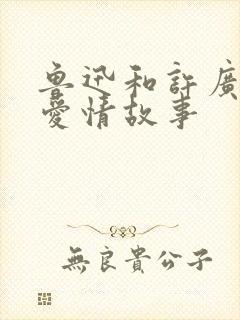 魯迅和許廣
愛情故事
無良貴公子